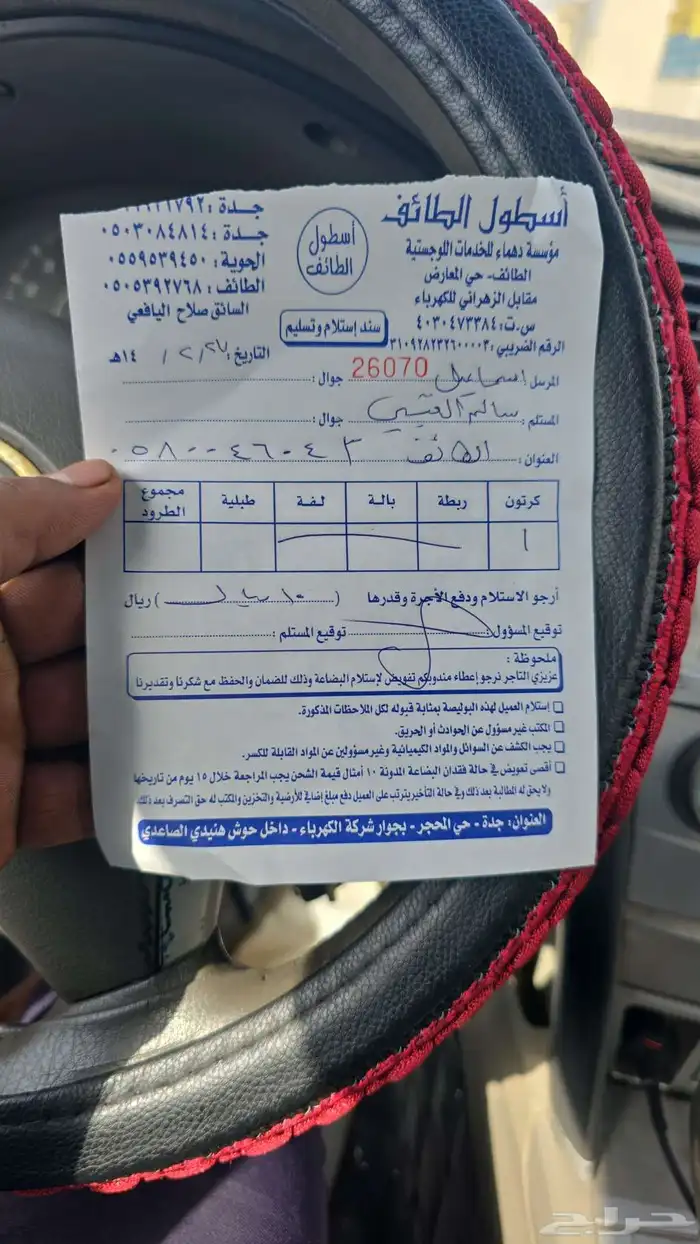 أسطول الطائف
مؤسسة دهماء للخدمات اللوجستية
الطائف - حي المعارض
مقابل الزهراني للكهرباء
س.ت: ٤٠٣٠٤٧٣٣٨٤
الرقم الضريبي: ٣١٠٩٢٨٢٣٢٦٠٠٠٠٣
أسطول
الطائف
سند إستلام وتسليم
جدة:
جدة: ٠٥٠٣٠٨٤٨١٤
الحوية: ٠٥٥٩٥٣٩٤٥٠
الطائف: ٠٥٠٥٣٩٢٧٦٨
السائق صلاح اليافعي
التاريخ: ٢٧ / ٢ / ١٤هـ
26070
المرسل: اسماعيل جوال:
المستلم: سالم العتيبي جوال:
العنوان: الطائف ٠٥٨٠٠٤٦٠٤٣
كرتون ربطة بالة لفة طبلية مجموع الطرود
١
أرجو الاستلام ودفع الأجرة وقدرها (١٠ ريال) ريال
توقيع المسؤول: توقيع المستلم:
ملحوظة:
عزيزي التاجر نرجو إعطاء مندوبكم تفويض لإستلام البضاعة وذلك للضمان والحفظ مع شكرنا وتقديرنا
إستلام العميل لهذه البوليصة بمثابة قبوله لكل الملاحظات المذكورة.
المكتب غير مسؤول عن الحوادث أو الحريق.
يجب الكشف عن السوائل والمواد الكيميائية وغير مسؤولين عن المواد القابلة للكسر.
أقصى تعويض في حالة فقدان البضاعة المدونة ١٠ أمثال قيمة الشحن يجب المراجعة خلال ١٥ يوم من تاريخها
ولا يحق له المطالبة بعد ذلك وفي حالة التأخير يترتب على العميل دفع مبلغ إضافي للأرضية والتخزين والمكتب له حق التصرف بعد ذلك
العنوان: جدة - حي المحجر - بجوار شركة الكهرباء - داخل حوش هنيدي الصاعدي
حراج